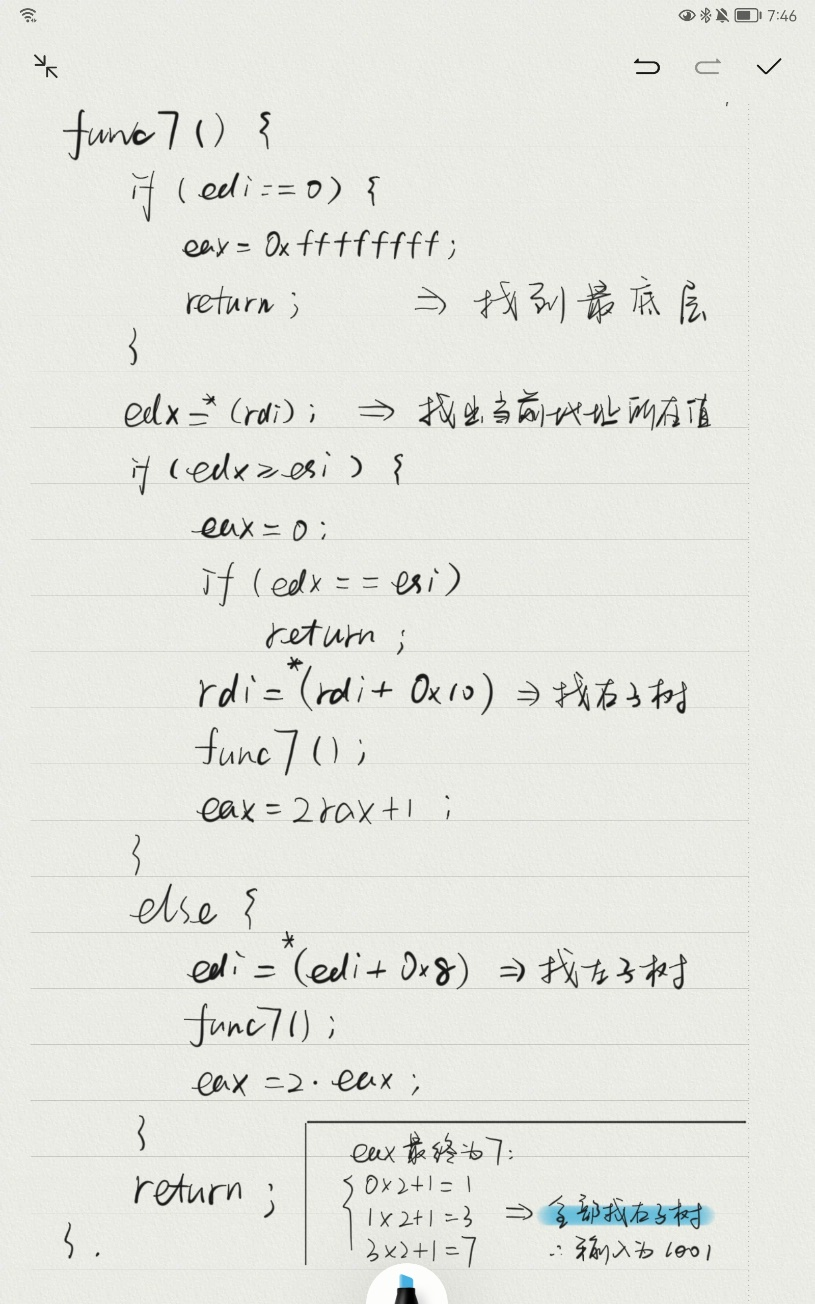 7:46
func7() {
if (edi == 0) {
eax = 0xffffffff;
return; ⇒ 找到最底层
}
edx = *(rdi); ⇒ 找出当前地址所在值
if (edx ≥ esi) {
eax = 0;
if (edx == esi)
return;
rdi = *(rdi + 0x10) ⇒ 找右子树
func7();
eax = 2rax+1 ;
}
else {
edi = *(edi + 0x8) ⇒ 找左子树
func7();
eax = 2·eax;
}
return ;
} .
eax 最终为7:
0x2+1 = 1
1x2+1 =3 ⇒ 全部找右子树
3x2+1 =7 ∴ 输入为 1001